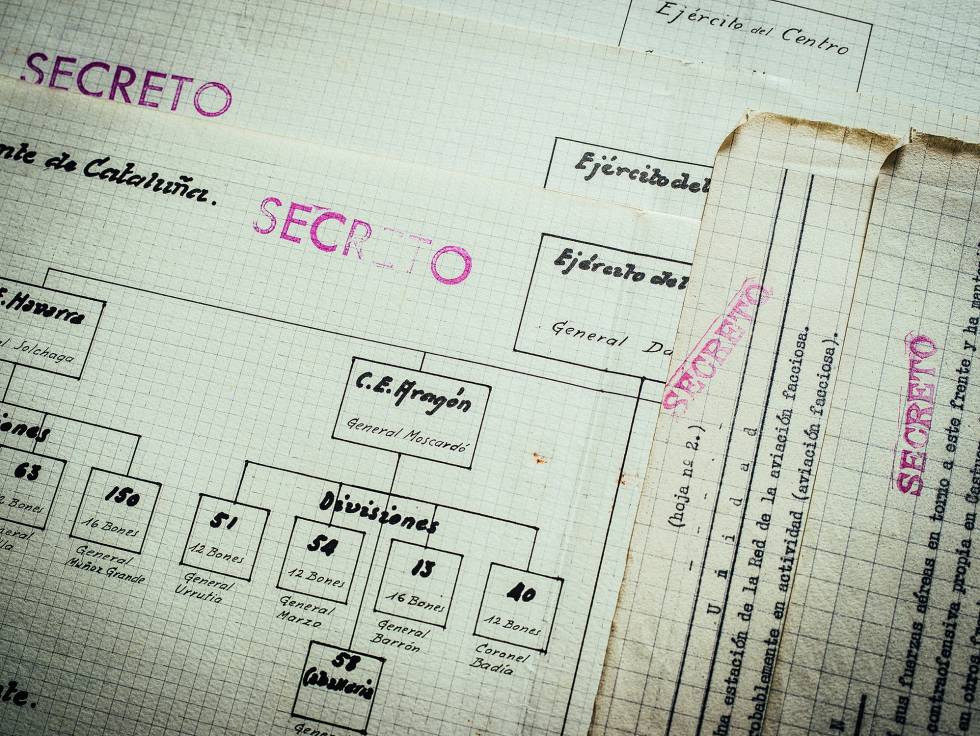 Ejército del Centro
SECRETO
nte de Cataluña.
SECRETO
Ejército del
Ejército del
General Da
E. Navarra
Solchaga
C.E. Aragón
General Moscardó
ones
63
2 Bones
eral
150
16 Bones
General
Muñoz Grande
Divisiones
51
12 Bones
General
Urrutia
54
12 Bones
General
Marzo
13
16 Bones
General
Barrón
40
12 Bones
Coronel
Badía
58
te.
SECRETO
(hoja nº 2.)
U n i d a d
na estación de la Red de la aviación facciosa.
obablemente en actividad (aviación facciosa).
N
SECRETO
sus fuerzas aéreas en torno a este frente y ha
contraofensiva propia en